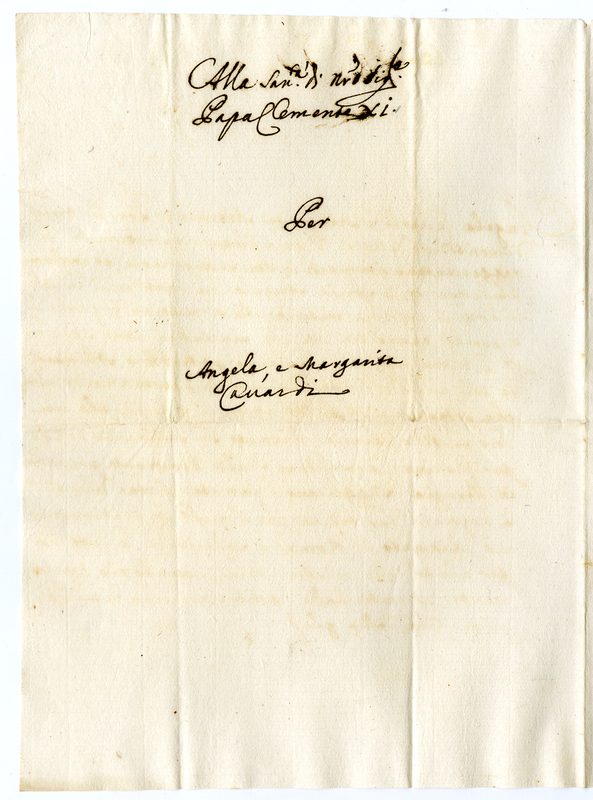 Alla San.tà di Nr̃o Sig.re
Papa Clemente XI.
Per
Angela, e Margarita
Cavardi